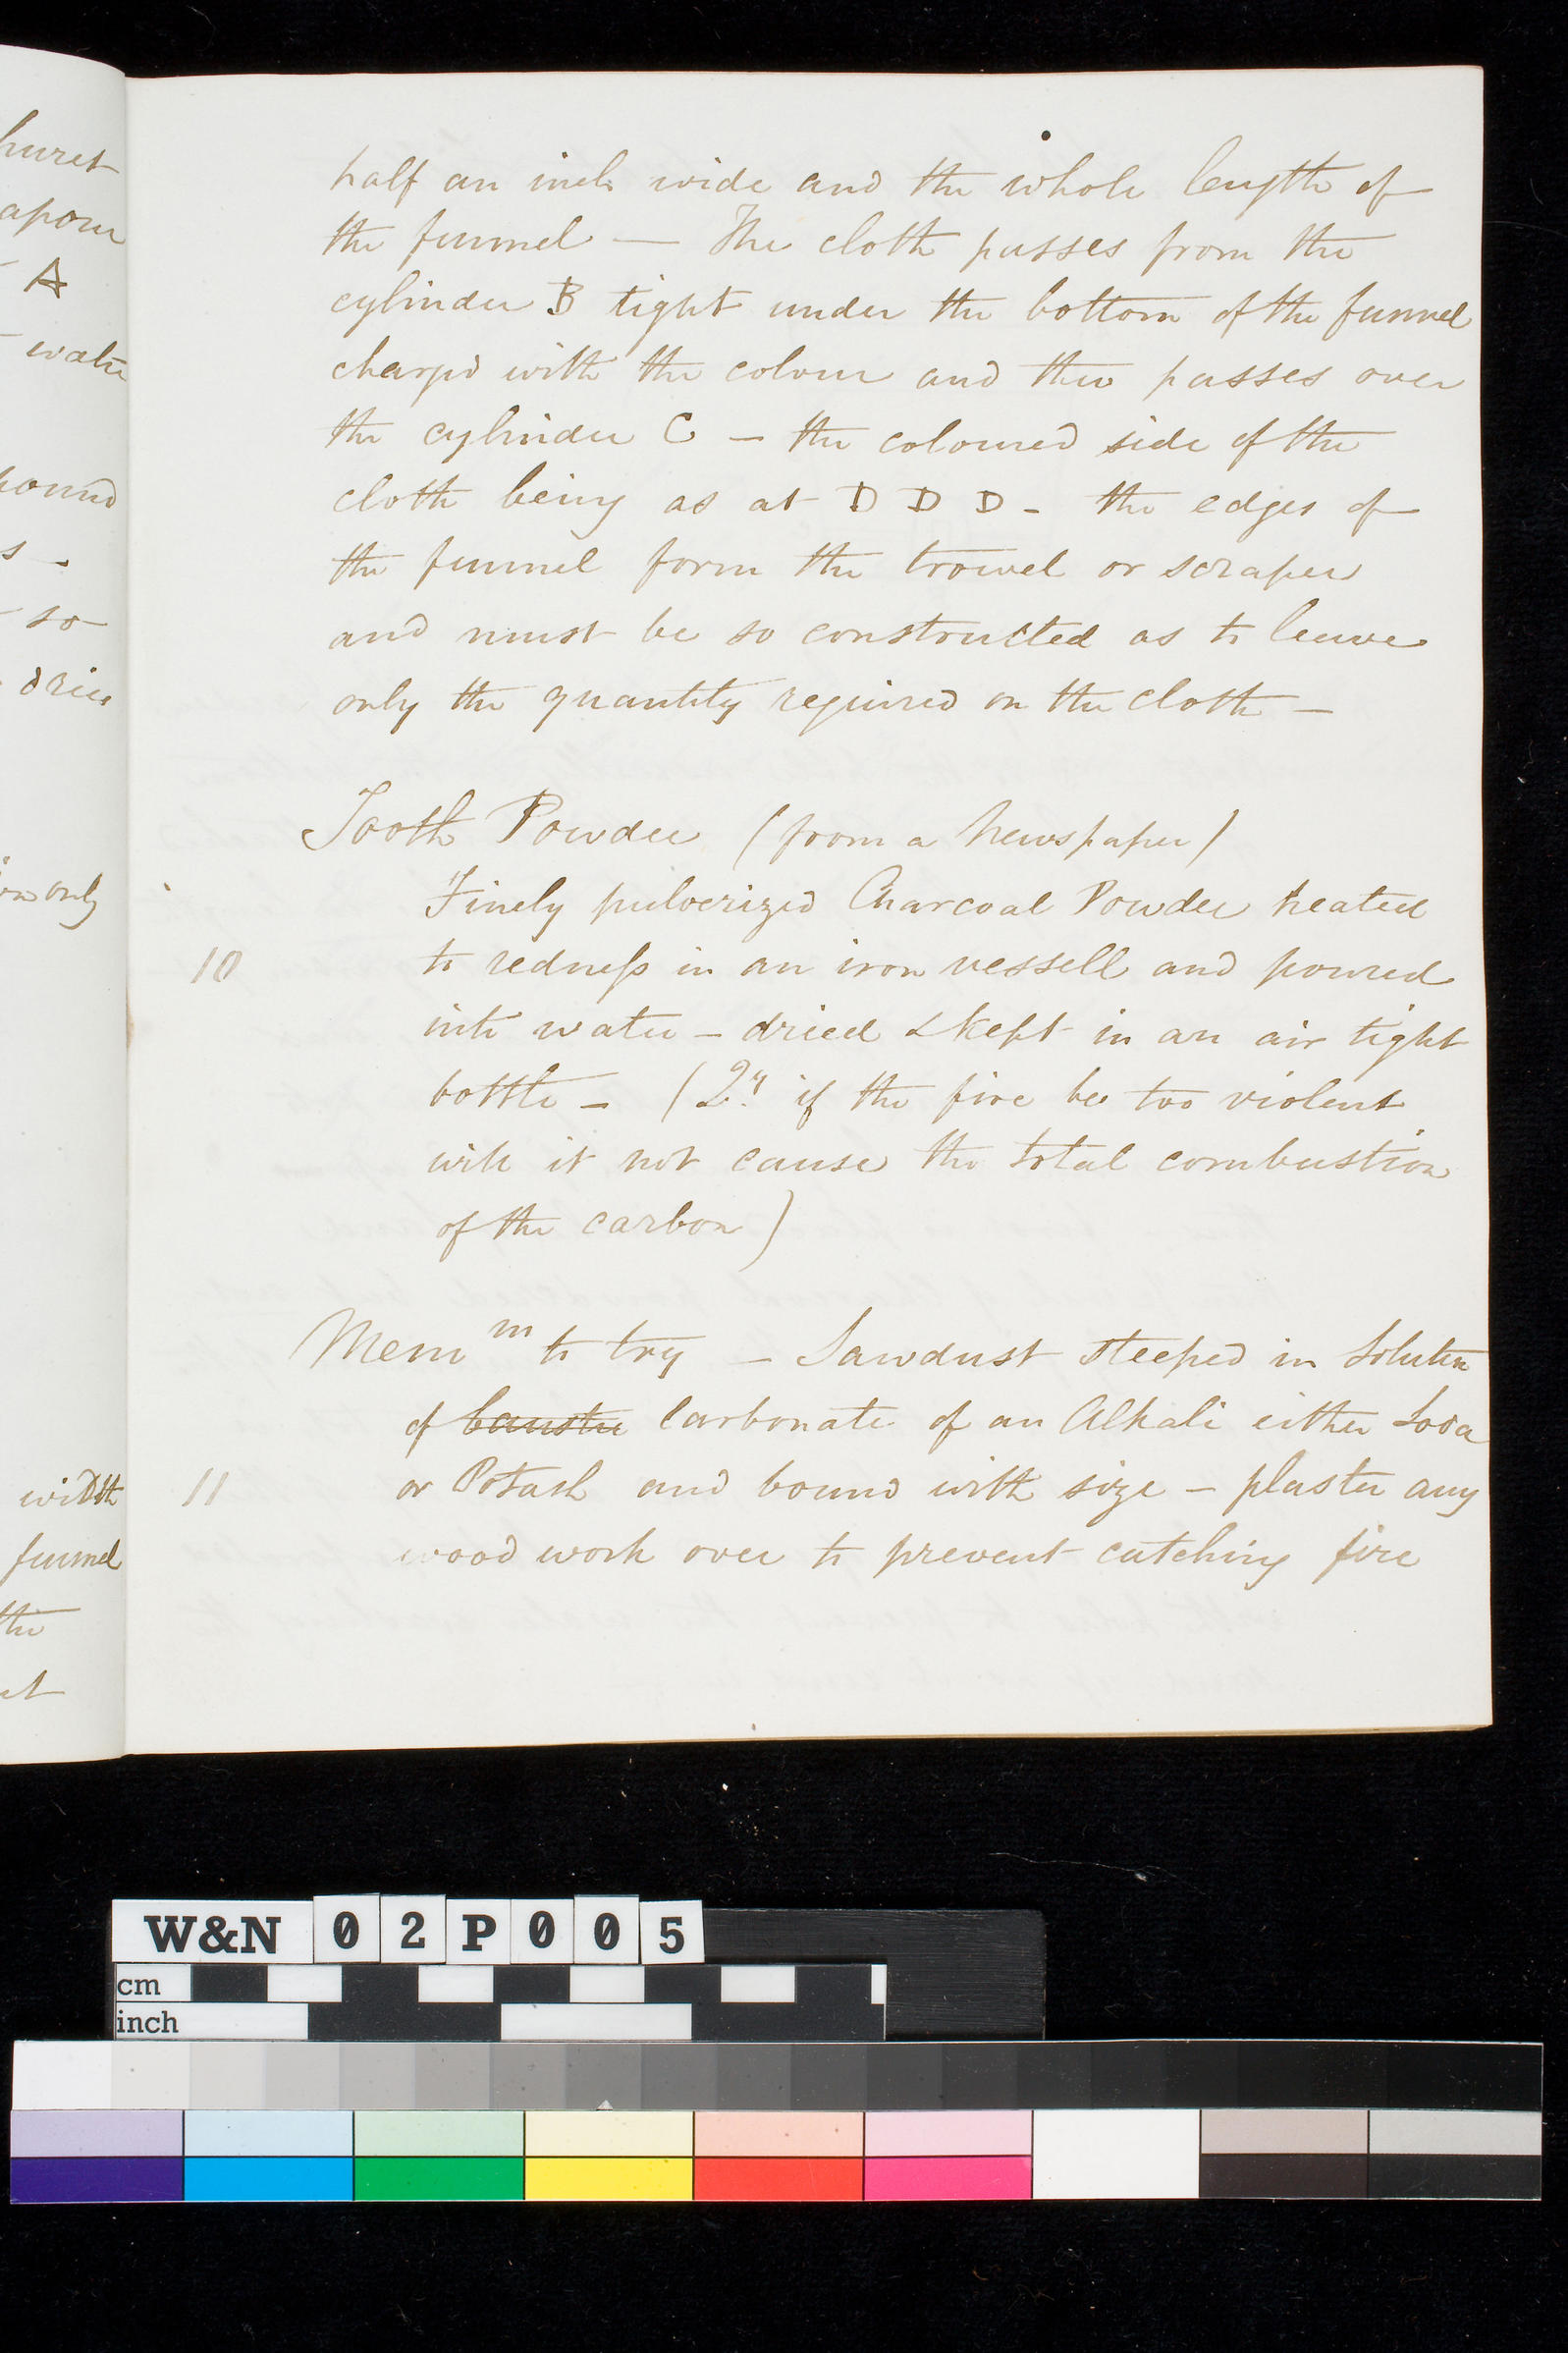 huret
apour
A
water
bound
s -
so
dries
only
width
funnel
the
et
half an inch wide and the whole length of
the funnel — The cloth passes from the
cylinder B tight under the bottom of the funnel
charged with the colour and then passes over
the cylinder C — the coloured side of the
cloth being as at D D D - the edges of
the funnel form the trowel or scraper
and must be so constructed as to leave
only the quantity required on the cloth —
Tooth Powder (from a Newspaper)
Finely pulverized Charcoal Powder heated
10 to redness in an iron vessell and poured
into water - dried & kept in an air tight
bottle - (Qy. if the fire be too violent
will it not cause the total combustion
of the carbon)
Memm to try — Sawdust steeped in Solution
of caustic Carbonate of an Alkali either Soda
11 or Potash and bound with size - plaster any
wood work over to prevent catching fire
W&N 02P005
cm
inch